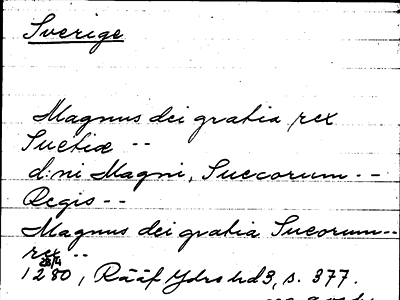 Sverige
Magnus dei gratia rex
Suetiæ --
d:ni Magni, Sueorum --
Regis --
Magnus dei gratia Sueorum --
rex --
28/4
1280, Rääf Ydre hd 3, s. 377.